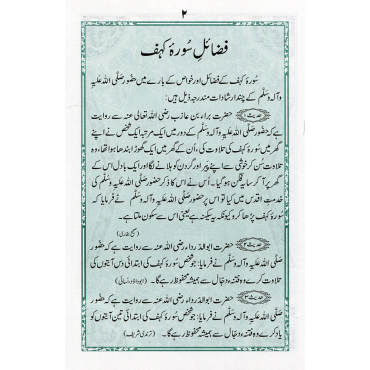 ۲
فضائلِ سُورۂ کہف
سُورۂ کہف کے فضائل اور خواص کے بارے میں حضور صلّی اللہ علیہ
وآلہٖ وسلّم کے چند ارشادات مندرجہ ذیل ہیں:
حدیث ۱ حضرت براء بن عازب رضی اللہ تعالیٰ عنہ سے روایت
ہے کہ حضور صلّی اللہ علیہ وآلہٖ وسلّم کے دور میں ایک مرتبہ ایک شخص نے اپنے
گھر میں سُورۂ کہف کی تلاوت کی، اُن کے گھر میں ایک گھوڑا بندھا ہوا تھا، وہ
تلاوت سُن کر خوشی سے اپنے پیر اور گردن کو ہلانے لگا اور ایک بادل اس کے
گھر پر آ کر سایہ فگن ہو گیا۔ اُس نے اس کا ذکر حضور صلّی اللہ علیہ وآلہٖ وسلّم کی
خدمتِ اقدس میں کیا تو حضور صلّی اللہ علیہ وآلہٖ وسلّم نے فرمایا کہ
سُورۂ کہف پڑھا کرو کیونکہ یہ سکینہ ہے یعنی اس سے سکون ملتا ہے۔
(صحیح بخاری)
حدیث ۲ حضرت ابوالدّرداء رضی اللہ عنہ سے روایت ہے کہ حضور
صلّی اللہ علیہ وآلہٖ وسلّم نے فرمایا: جو شخص سُورۂ کہف کی ابتدائی دس آیتوں کی
تلاوت کرے وہ فتنۂ دجّال سے ہمیشہ محفوظ رہے گا۔ (ابوداؤد، نسائی)
حدیث ۳ حضرت ابوالدّرداء رضی اللہ عنہ سے روایت ہے کہ حضور
صلّی اللہ علیہ وآلہٖ وسلّم نے فرمایا: جو شخص سُورۂ کہف کی ابتدائی تین آیتوں کو
یاد کرے وہ فتنۂ دجّال سے ہمیشہ محفوظ رہے گا۔ (ترمذی شریف)